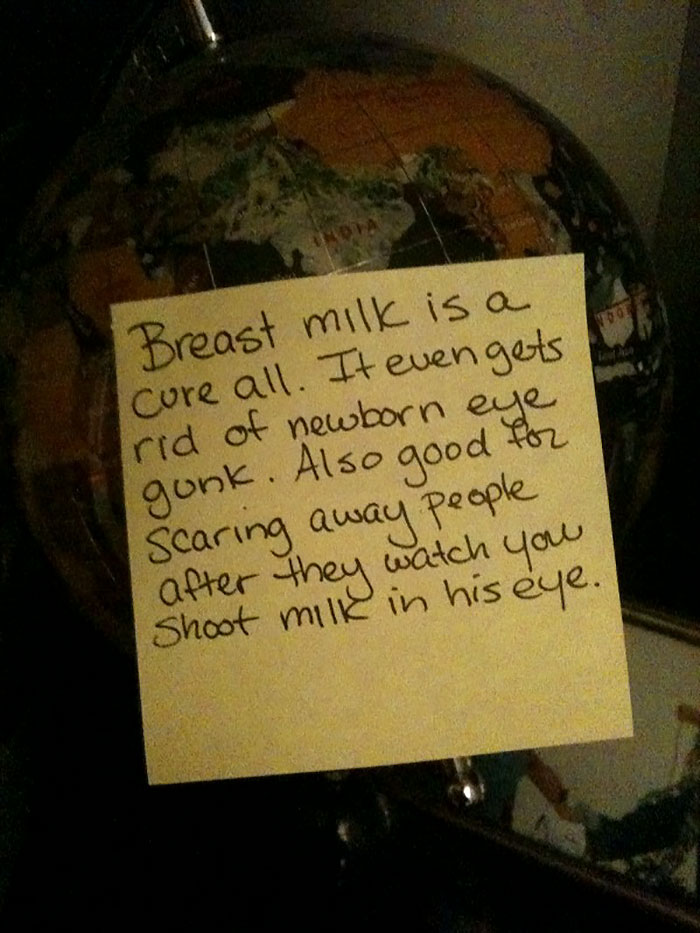 INDIA
Breast milk is a
cure all. It even gets
rid of newborn eye
gunk. Also good for
scaring away people
after they watch you
shoot milk in his eye.